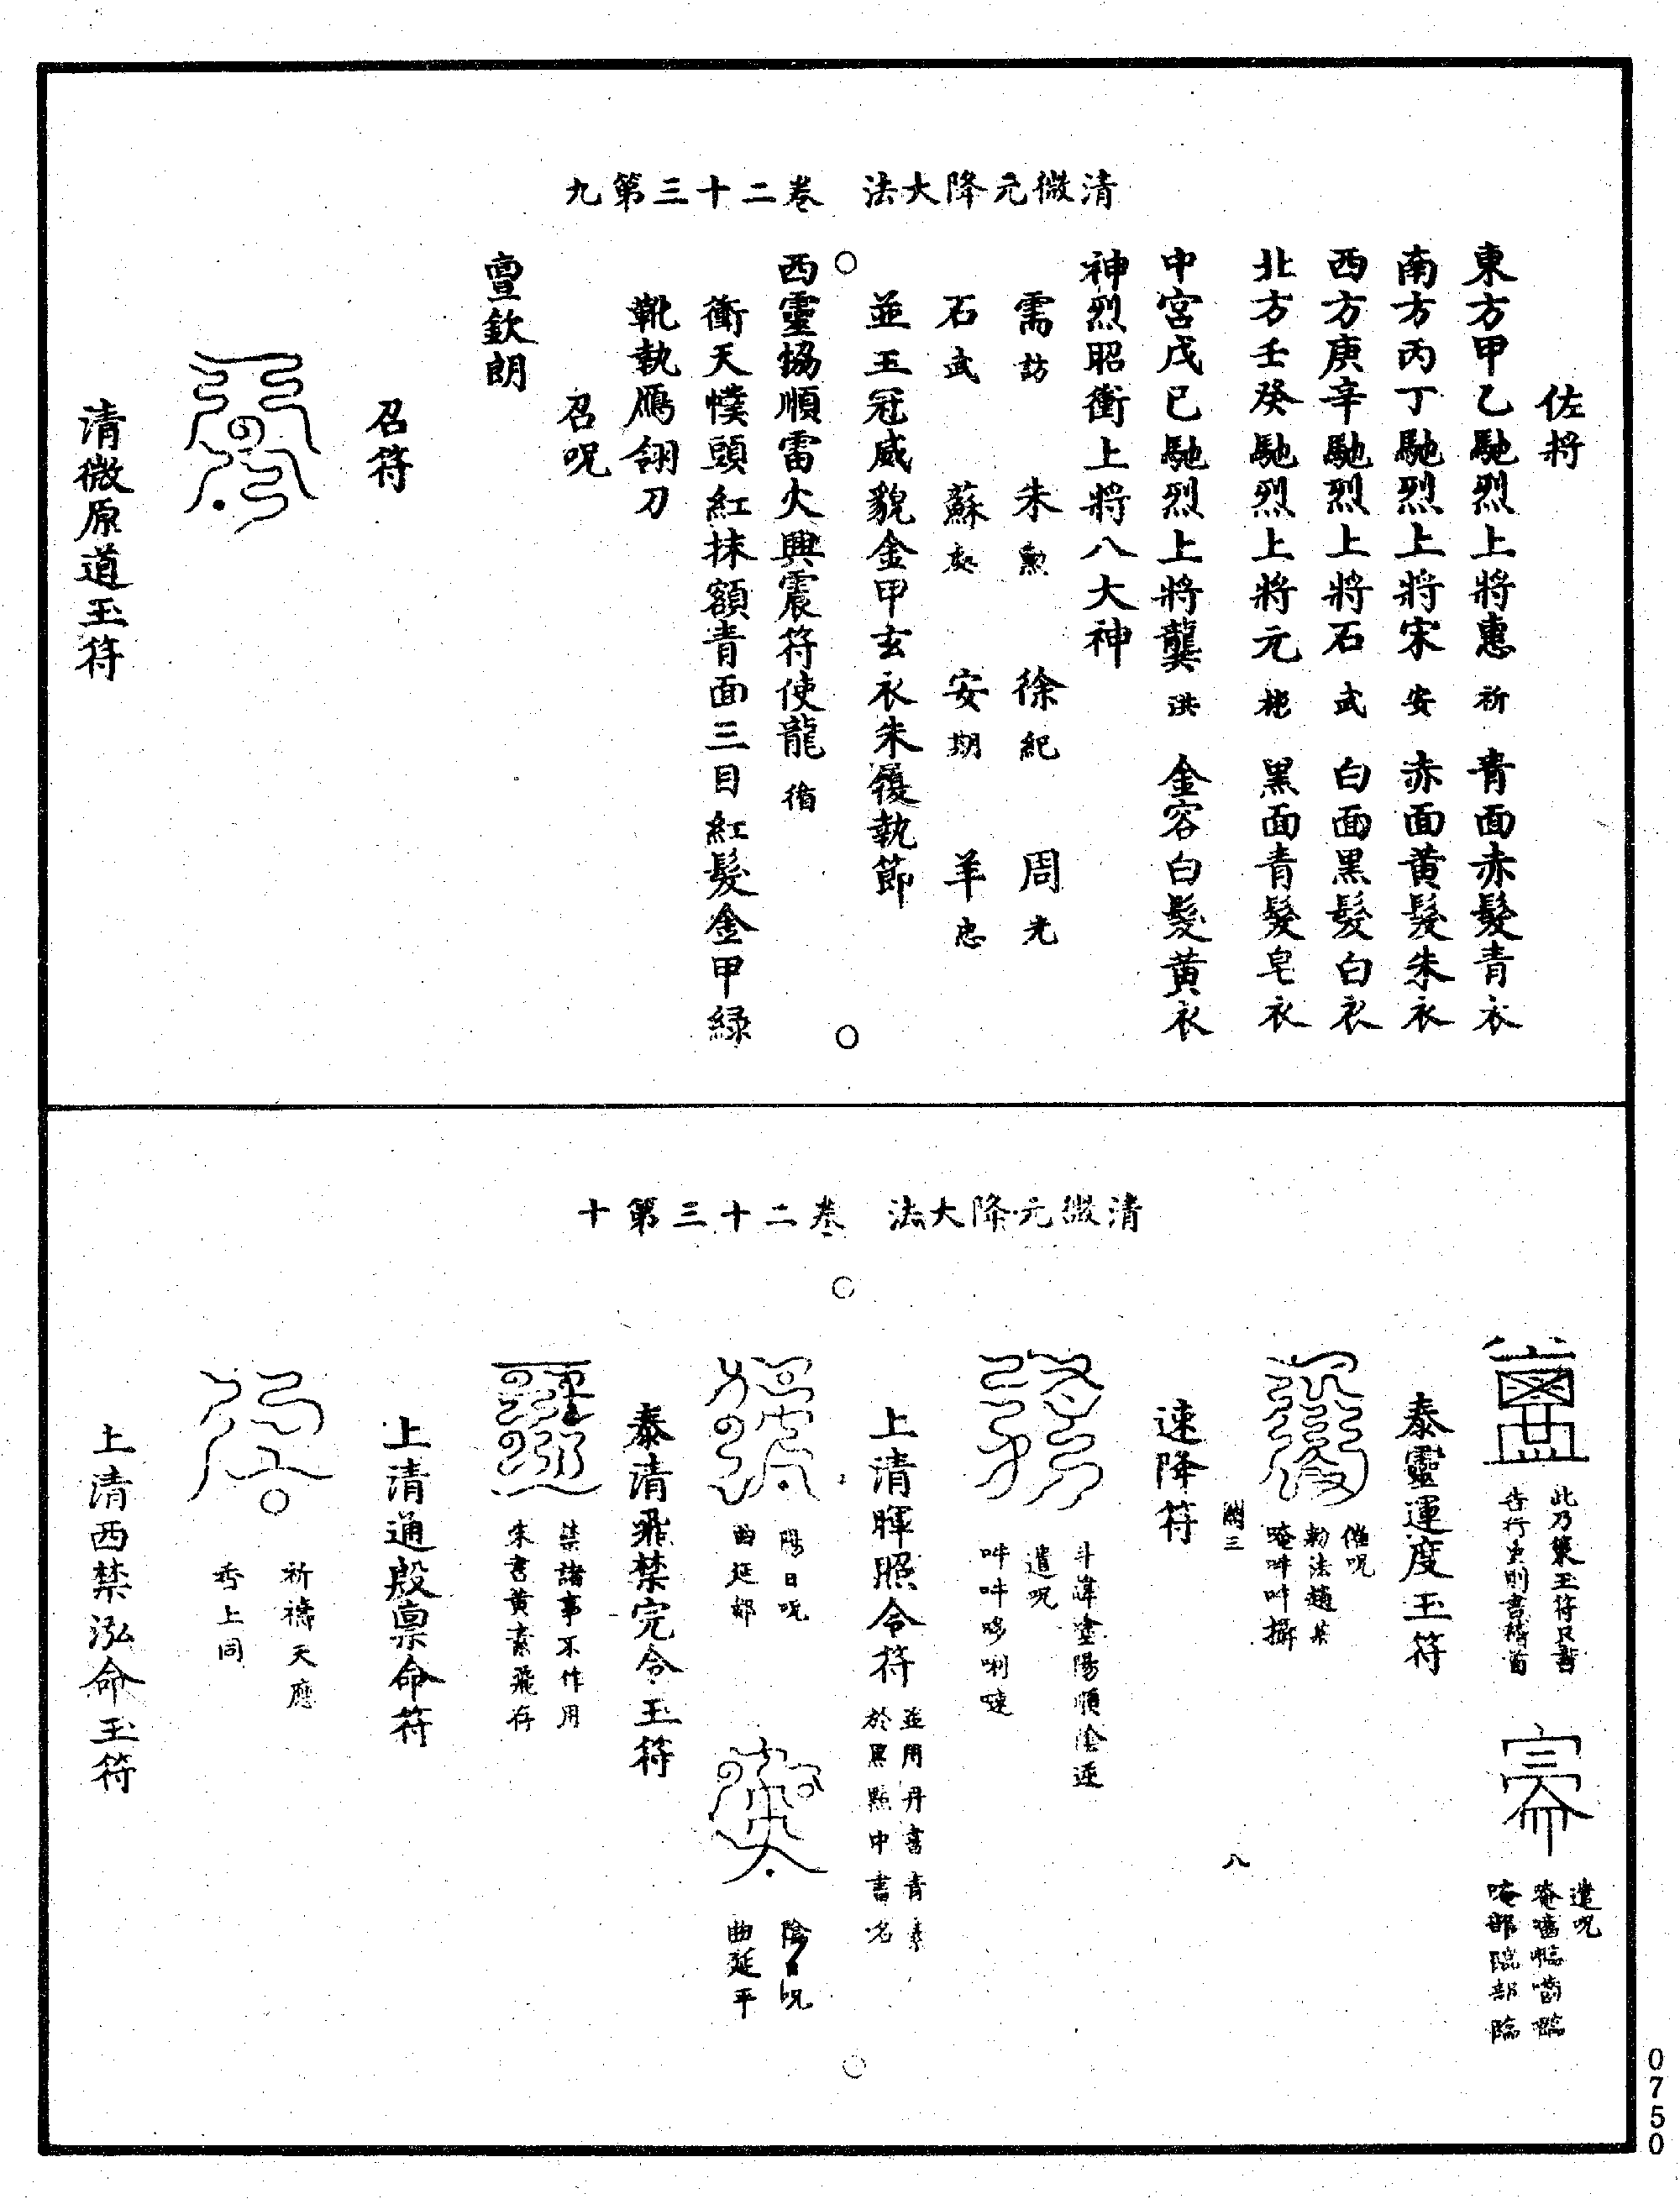 清微元降大法　卷二十三第九
佐將
東方甲乙馳烈上將惠祈　青面赤髮青衣
南方丙丁馳烈上將宋安　赤面黄髮朱衣
西方庚辛馳烈上將石武　白面黑髮白衣
北方壬癸馳烈上將元　黑面青髮皂衣
中宮戊己馳烈上將龔洪　金容白髮黃衣
神烈昭衝上將八大神
需訪　朱勳　徐紀　周光
石武　蘇　安期　羊忠
並玉冠威貌金甲玄衣朱履執節
西靈協順雷火興震符使龍
衝天幞頭紅抹額青面三目紅髮金甲緑
靴執鴈翎刀
召呪
亶欽朗
召符
清微原道玉符
清微元降大法　卷二十三第十
此乃策玉符只書
告行
遣呪
泰靈運度玉符
催呪
勑法趙某
唵吽吽攝
關三　八
速降符
斗諱塗陽順陰逆
遣呪
吽吽哆唎
上清暉照令符
並用丹書青素
於黑點中書名
陽日呪
曲延部
陰日呪
曲延平
泰清飛禁完令玉符
禁諸事不作用
朱書黄素飛存
上清通殷禀命符
祈禱天應
香上同
上清西禁泓命玉符
0750